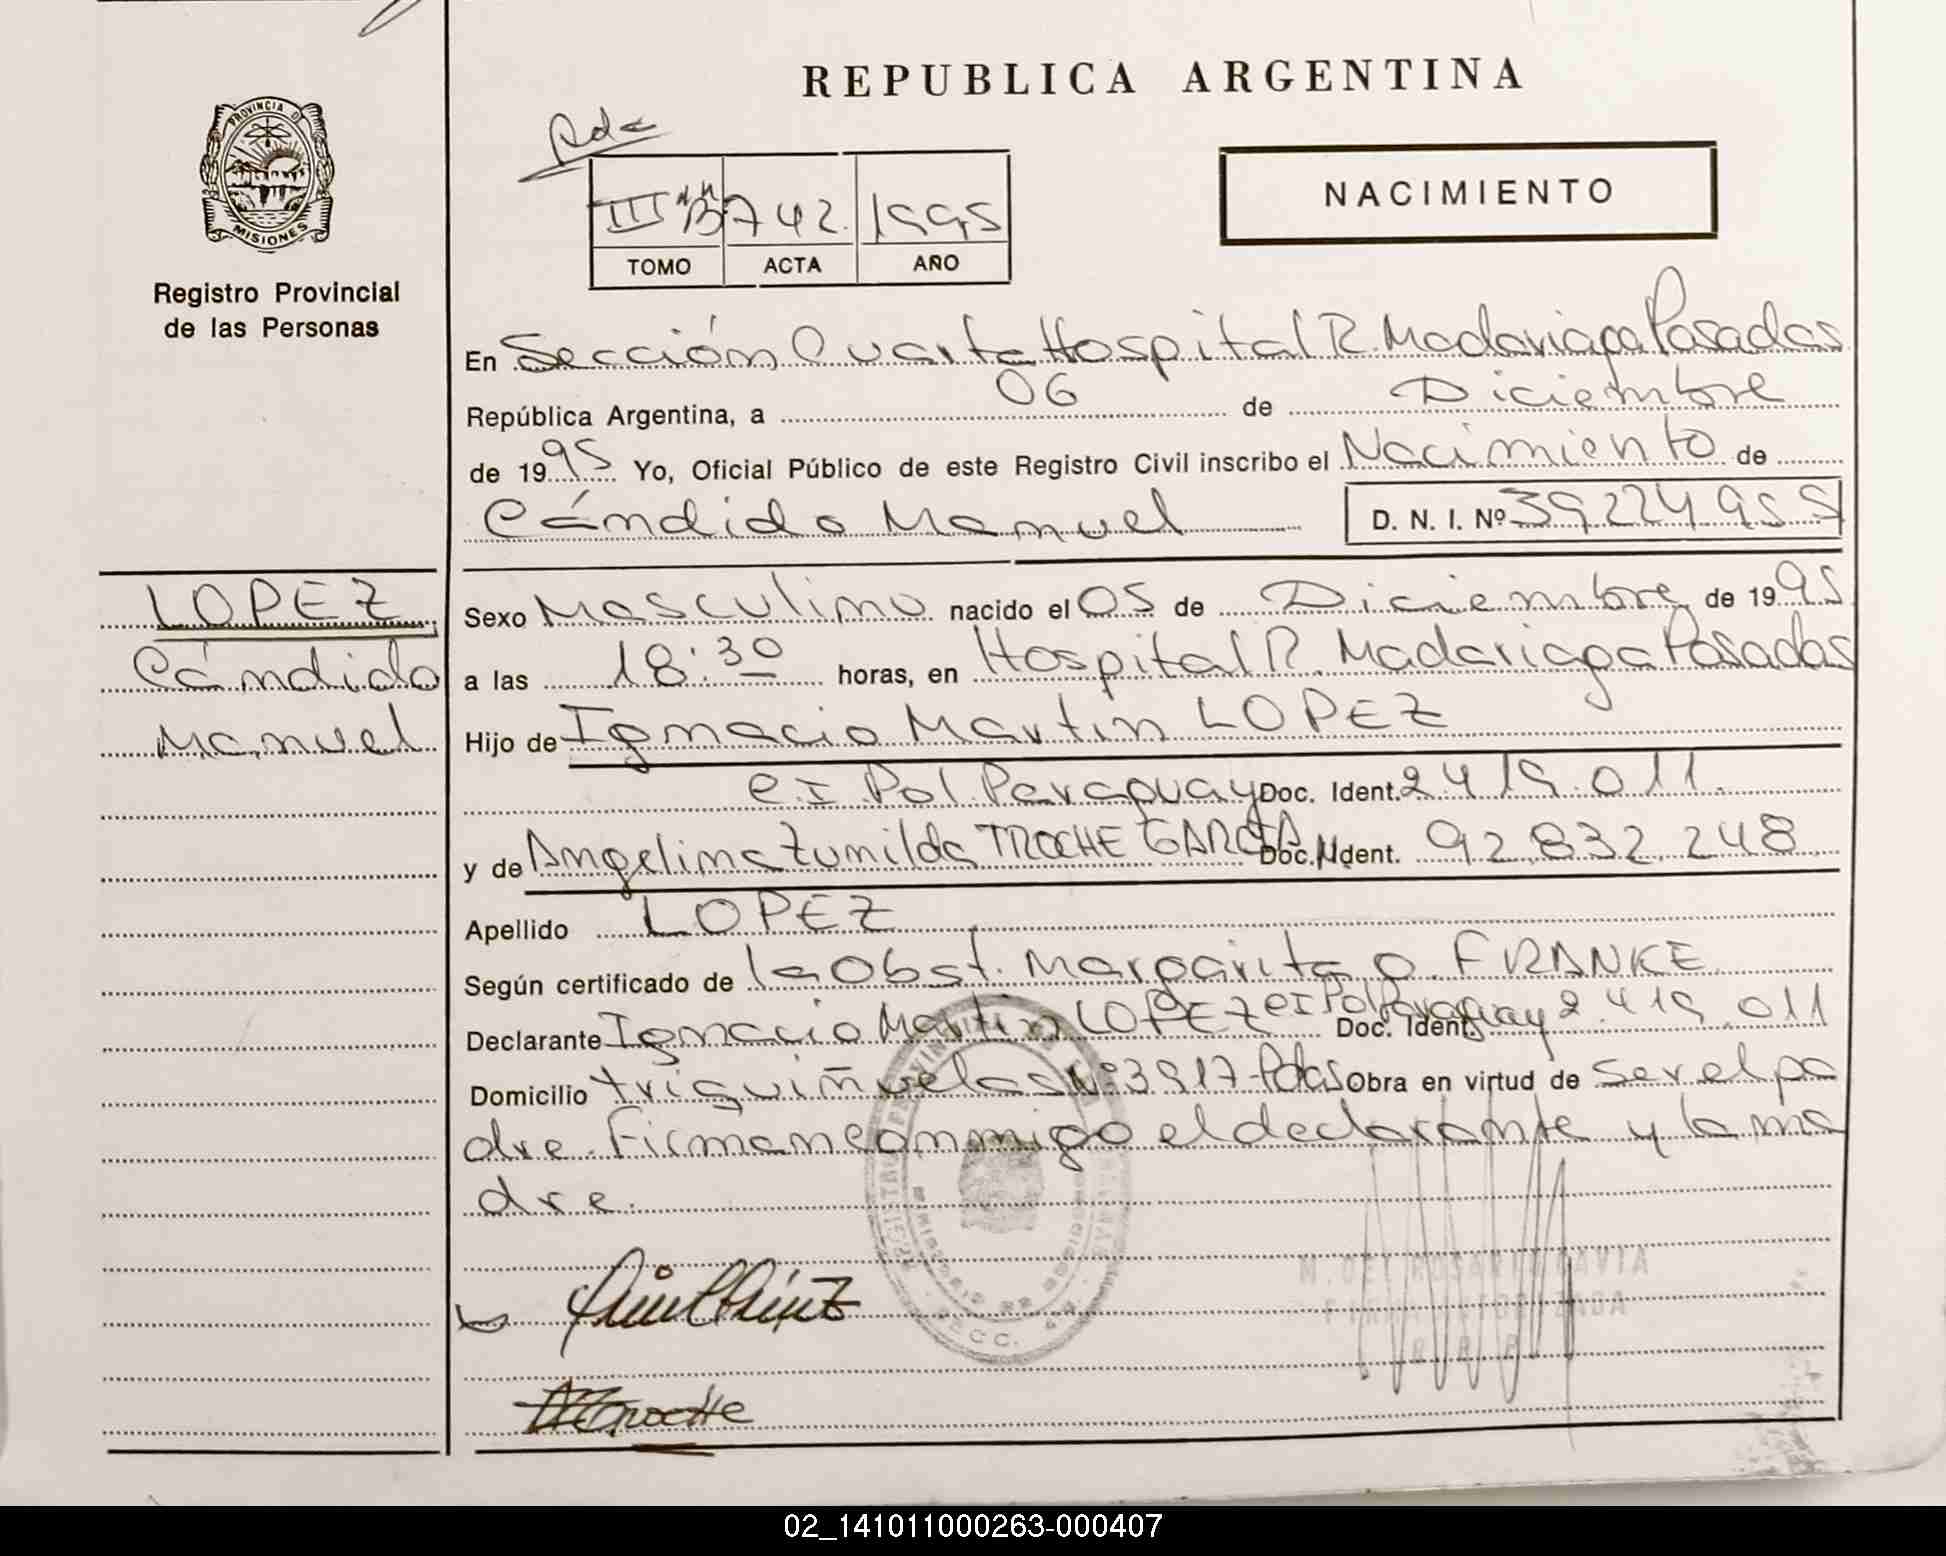 REPUBLICA ARGENTINA
PROVINCIA DE
MISIONES
Registro Provincial
de las Personas
III "B" 742 1995
TOMO ACTA AÑO
NACIMIENTO
En Sección Cuarta Hospital R. Madariaga Posadas
República Argentina, a 06 de Diciembre
de 1995 Yo, Oficial Público de este Registro Civil inscribo el Nacimiento de
Cándido Manuel D. N. I. Nº 39224955
LOPEZ
Cándido
Manuel
Sexo Masculino nacido el 05 de Diciembre de 1995
a las 18:30 horas, en Hospital R. Madariaga Posadas
Hijo de Ignacio Martin LOPEZ
CI Pol Paraguay Doc. Ident. 2419.011
y de Angelina Zunilda TROCHE GARCIA Doc. Ident. 92.832.248
Apellido LOPEZ
Según certificado de la Obst. Margarita O. FRANKE
Declarante Ignacio Martin LOPEZ CI Pol Paraguay Doc. Ident. 2.419.011
Domicilio triquiñuelas Nº 3917-Pdas Obra en virtud de ser el pa
dre. Firman conmigo el declarante y la ma
dre.
M. DEL ROSARIO GAVIA
R.P.P.
02_141011000263-000407